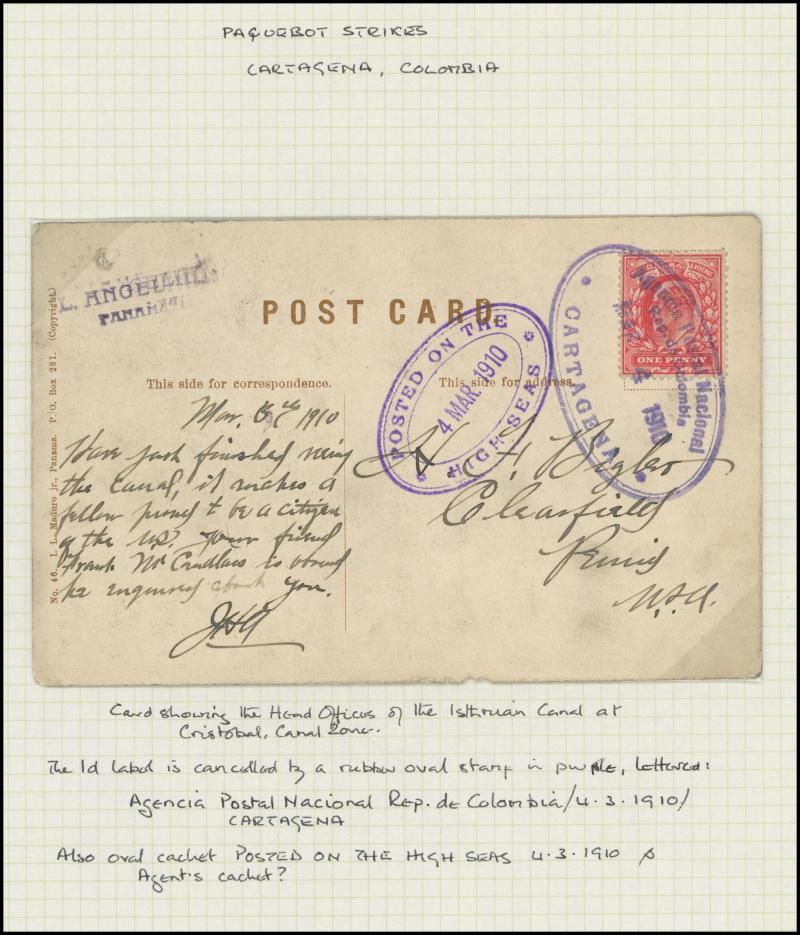 PAQUEBOT STRIKES
CARTAGENA, COLOMBIA
L. ANGELINI
PANAMA
POST CARD
This side for correspondence.
This side for address.
No. 46. I. L. Maduro jr., Panama. P. O. Box 281. (Copyright.)
POSTED ON THE
4 MAR. 1910
HIGH SEAS
Agencia Postal Nacional
Rep. de Colombia
MAR 4 1910
CARTAGENA
ONE PENNY
Mar. 6th 1910
Have just finished
the canal, it makes a
fellow proud to be a citizen
of the U.S. your friend
Frank is aboard
he enquired about you.
Clearfield
Penna
U.S.A.
Card showing the Head Offices of the Isthmian Canal at
Cristobal, Canal Zone.
The 1d label is cancelled by a rubber oval stamp in purple, lettered:
Agencia Postal Nacional Rep. de Colombia/4.3.1910/
CARTAGENA
Also oval cachet POSTED ON THE HIGH SEAS 4.3.1910
Agent's cachet?